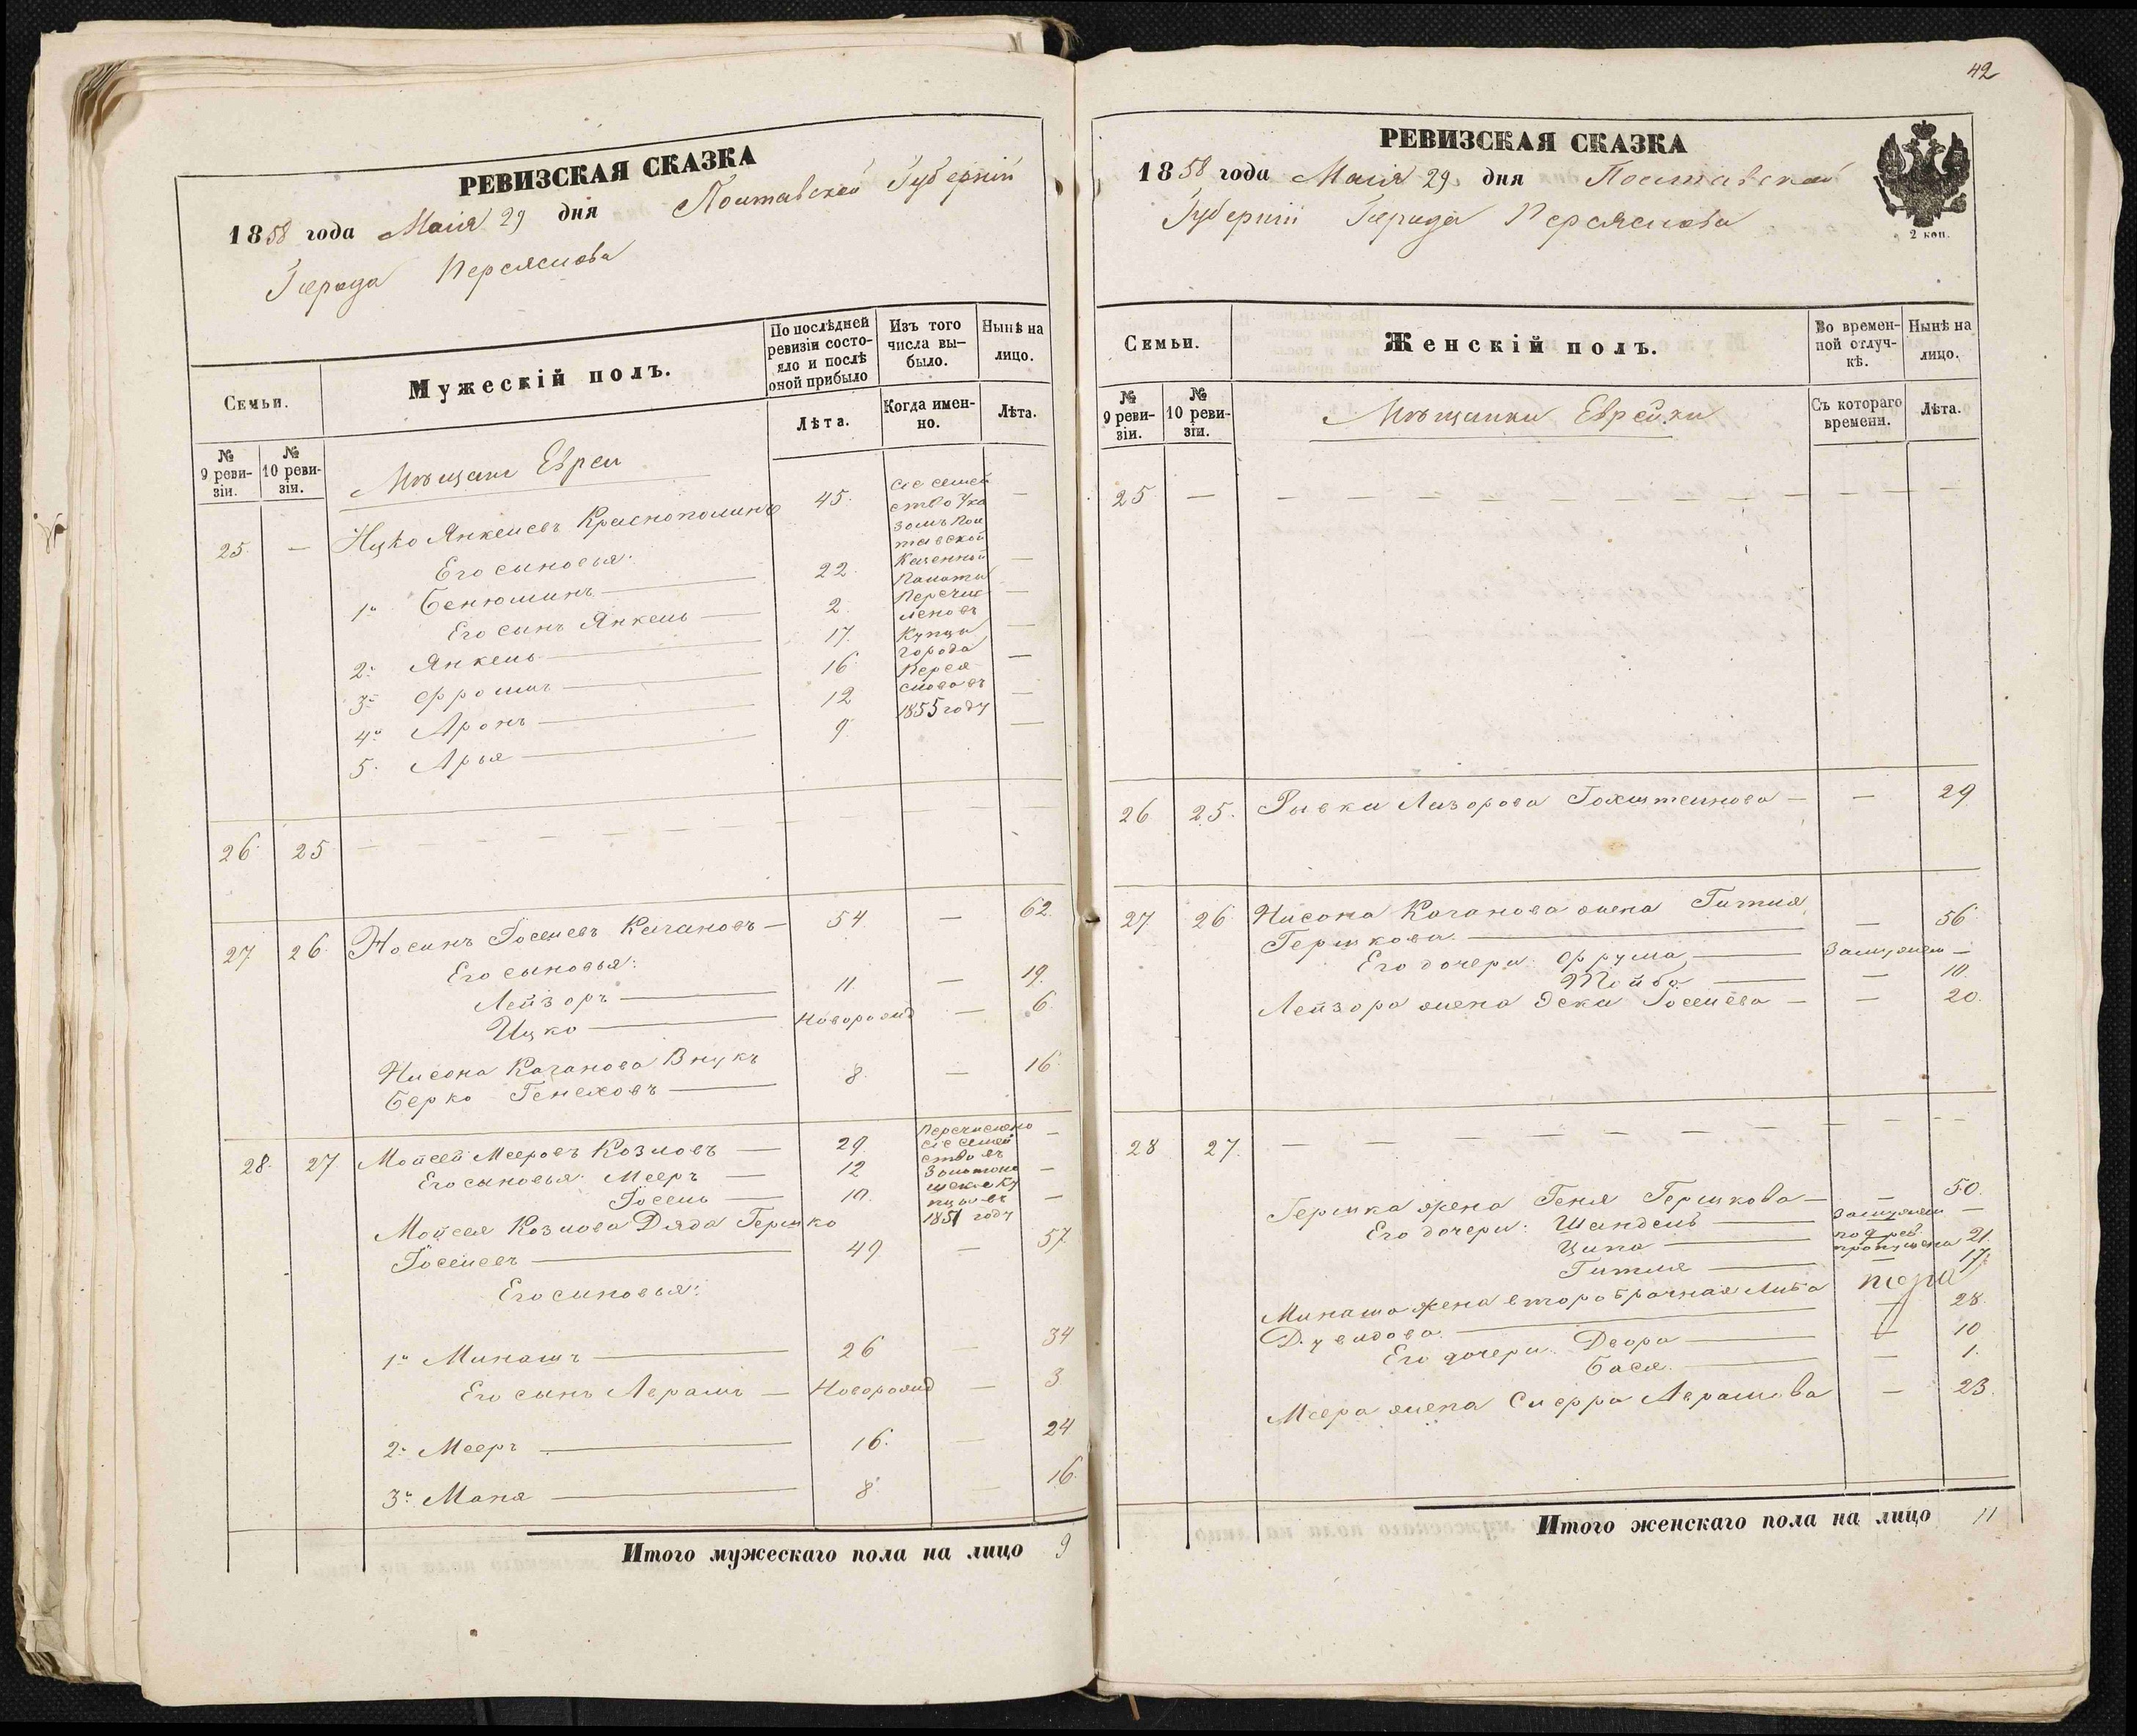 РЕВИЗСКАЯ СКАЗКА
1858 года Маія 29 дня Полтавской Губерніи
Города Переяслова
Семьи.
Мужескій полъ.
По послѣдней ревизіи состояло и послѣ оной прибыло
Изъ того числа вы—было.
Нынѣ на лицо.
№ 9 реви-зіи.
№ 10 реви-зіи.
Лѣта.
Когда имен-но.
Лѣта.
Мѣщане Евреи
25. — Ицко Янкелевъ Краснополь  45. —
Сіе семей
ство Ука
зомъ Пол
тавской
Казенной
Палаты
Перечис
леновъ
Купцы
города
Перея
словавъ
1855 году
Его сыновья:
1й Бенюминъ — 22. —
Его сынъ Янкель — 2. —
2й Янкель — 17. —
3й Фроимъ — 16 —
4й Аронъ — 12 —
5. Арья — 9. —
26. 25 — — — — — —
27 26 Носинъ Іоселевъ Кагановъ — 54 — 62.
Его сыновья:
Лейзоръ — 11. — 19.
Ицко — Новорожд — 6.
Нисона Каганова Внукъ
Берко Генеховъ — 8. — 16
28. 27 Мойсей Мееровъ Козловъ — 29. —
Перечислено
сіе семей
ство въ
Золотоно
шскіе ку
пцы въ
1851 году
Его сыновья: Мееръ — 12 —
Іосель — 10. —
Мойсея Козлова Дядя Гершко
Іоселевъ — 49 — 57.
Его сыновья:
1й Минашъ — 26 — 34
Его сынъ Аврамъ — Новорожд — 3
2й Мееръ — 16. — 24
3й Маня — 8 — 16.
Итого мужескаго пола на лицо 9
42
РЕВИЗСКАЯ СКАЗКА
1858 года Маія 29 дня Полтавской
Губерніи Города Переяслова
2 коп.
Семьи.
Женскій полъ.
Во времен-ной отлуч-кѣ.
Нынѣ на лицо.
№ 9 реви-зіи.
№ 10 реви-зіи.
Съ котораго времени.
Лѣта.
Мѣщанки Еврейки
25 — — — — — — —
26 25. Рывка Лизорова Гохштейнова — — 29
27 26 Нисона Каганова жена Гитля
Гершкова — — 56
Его дочери: Фрума — Замужем —
Тойба — — 10.
Лейзора жена Эска Іоселева — — 20.
28 27. — — — — — — —
Гершка жена Геня Гершкова — — 50.
Его дочери: Шандель — Замужем —
Ципа — по 9 рев. пропущена 21.
Гитля — — 17.
Минаша жена второбрачная Либа
Дувидова. — — 28.
Его дочери: Двора — — 10
Бася. — — 1.
Меера жена Сперра Аврамова — 23.
Итого женскаго пола на лицо 11